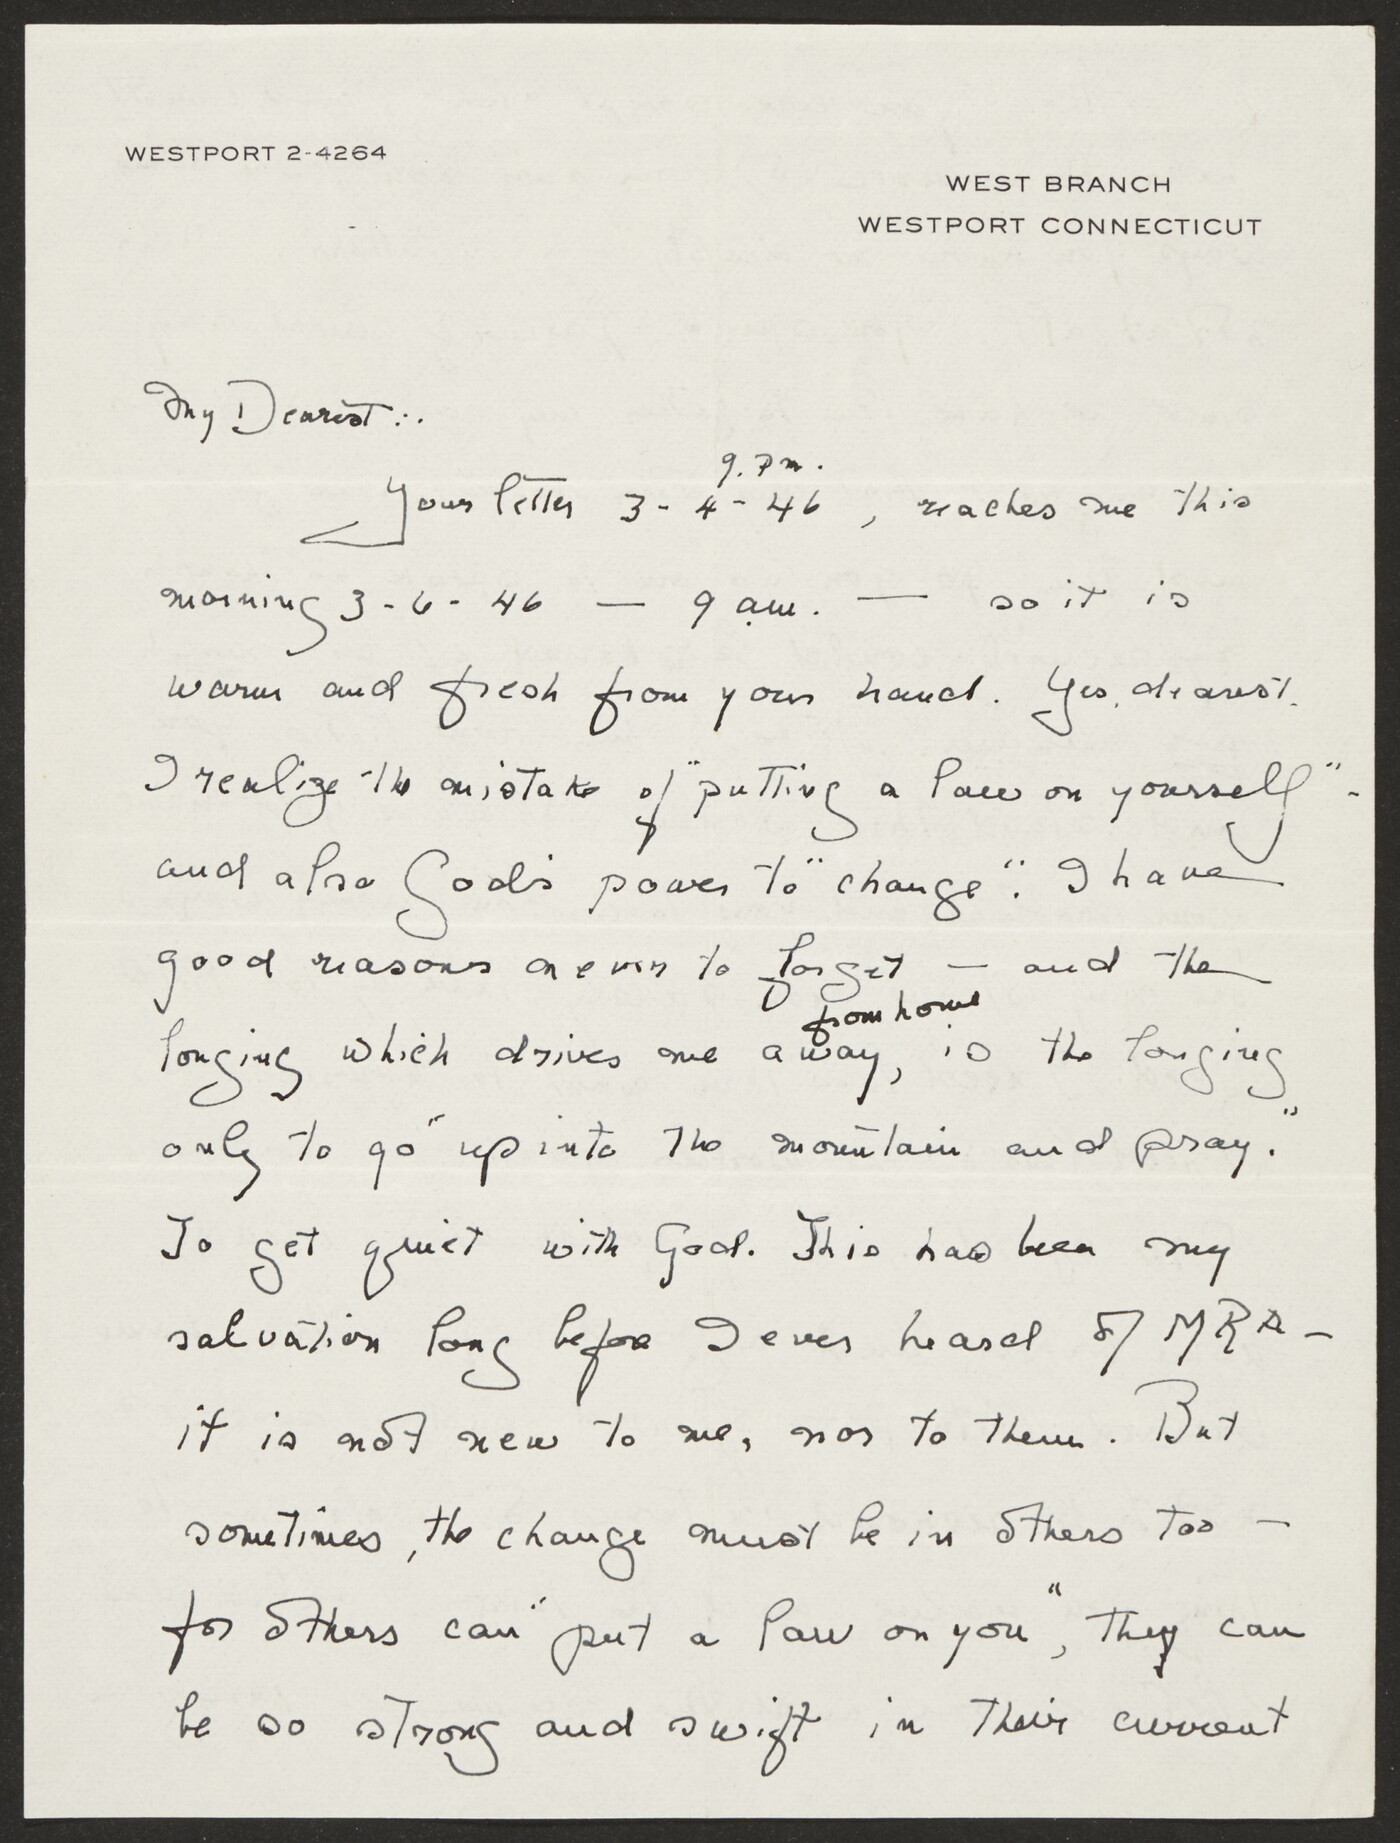 WESTPORT 2-4264
WEST BRANCH
WESTPORT CONNECTICUT
My Dearest:.
9. Pm.
Your letter 3-4-46, reaches me this
morning 3-6-46 — 9 am. — so it is
warm and fresh from your hand. Yes, dearest.
I realize the mistake of "putting a law on yourself" -
and also God's power to "change". I have
good reasons never to forget — and the
from home
longing which drives me away, is the longing
only to go "up into the mountain and pray."
To get quiet with God. This has been my
salvation long before I ever heard of MRA —
it is not new to me, nor to them. But
sometimes, the change must be in others too —
for others can "put a law on you", they can
be so strong and swift in their current